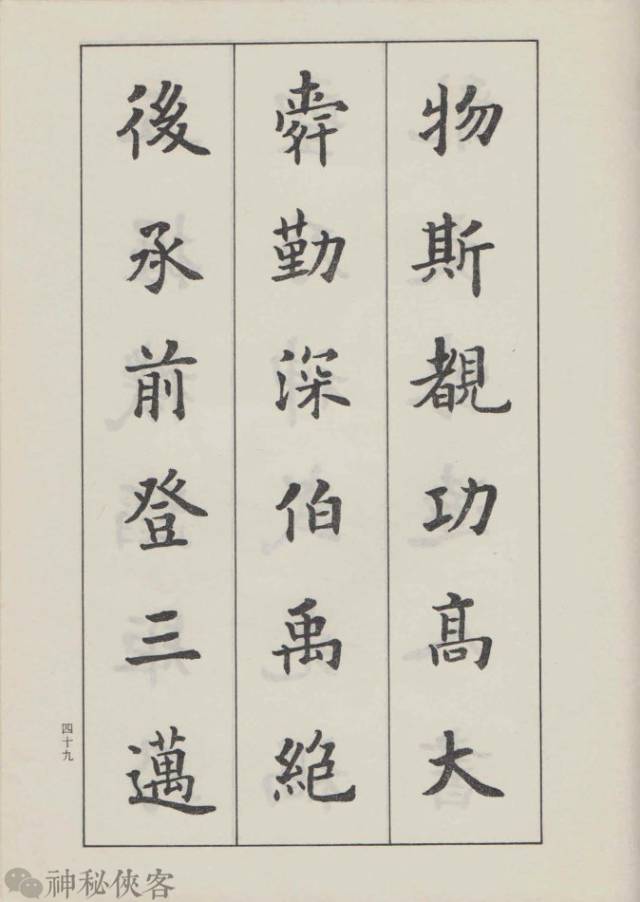 物斯覩功高大
舜勤深伯禹絶
後承前登三邁
四十九
神秘俠客